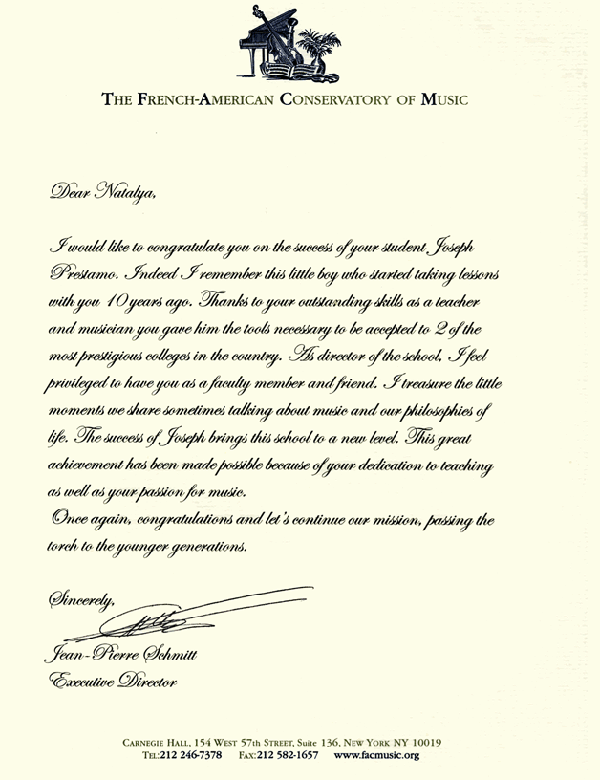 THE FRENCH-AMERICAN CONSERVATORY OF MUSIC
Dear Natalya,
I would like to congratulate you on the success of your student, Joseph
Prestamo. Indeed I remember this little boy who started taking lessons
with you 10 years ago. Thanks to your outstanding skills as a teacher
and musician you gave him the tools necessary to be accepted to 2 of the
most prestigious colleges in the country. As director of the school, I feel
privileged to have you as a faculty member and friend. I treasure the little
moments we share sometimes talking about music and our philosophies of
life. The success of Joseph brings this school to a new level. This great
achievement has been made possible because of your dedication to teaching
as well as your passion for music.
Once again, congratulations and let's continue our mission, passing the
torch to the younger generations.
Sincerely,
Jean-Pierre Schmitt
Executive Director
CARNEGIE HALL, 154 WEST 57th STREET, Suite 136, NEW YORK NY 10019
TEL:212 246-7378 FAX:212 582-1657 www.facmusic.org